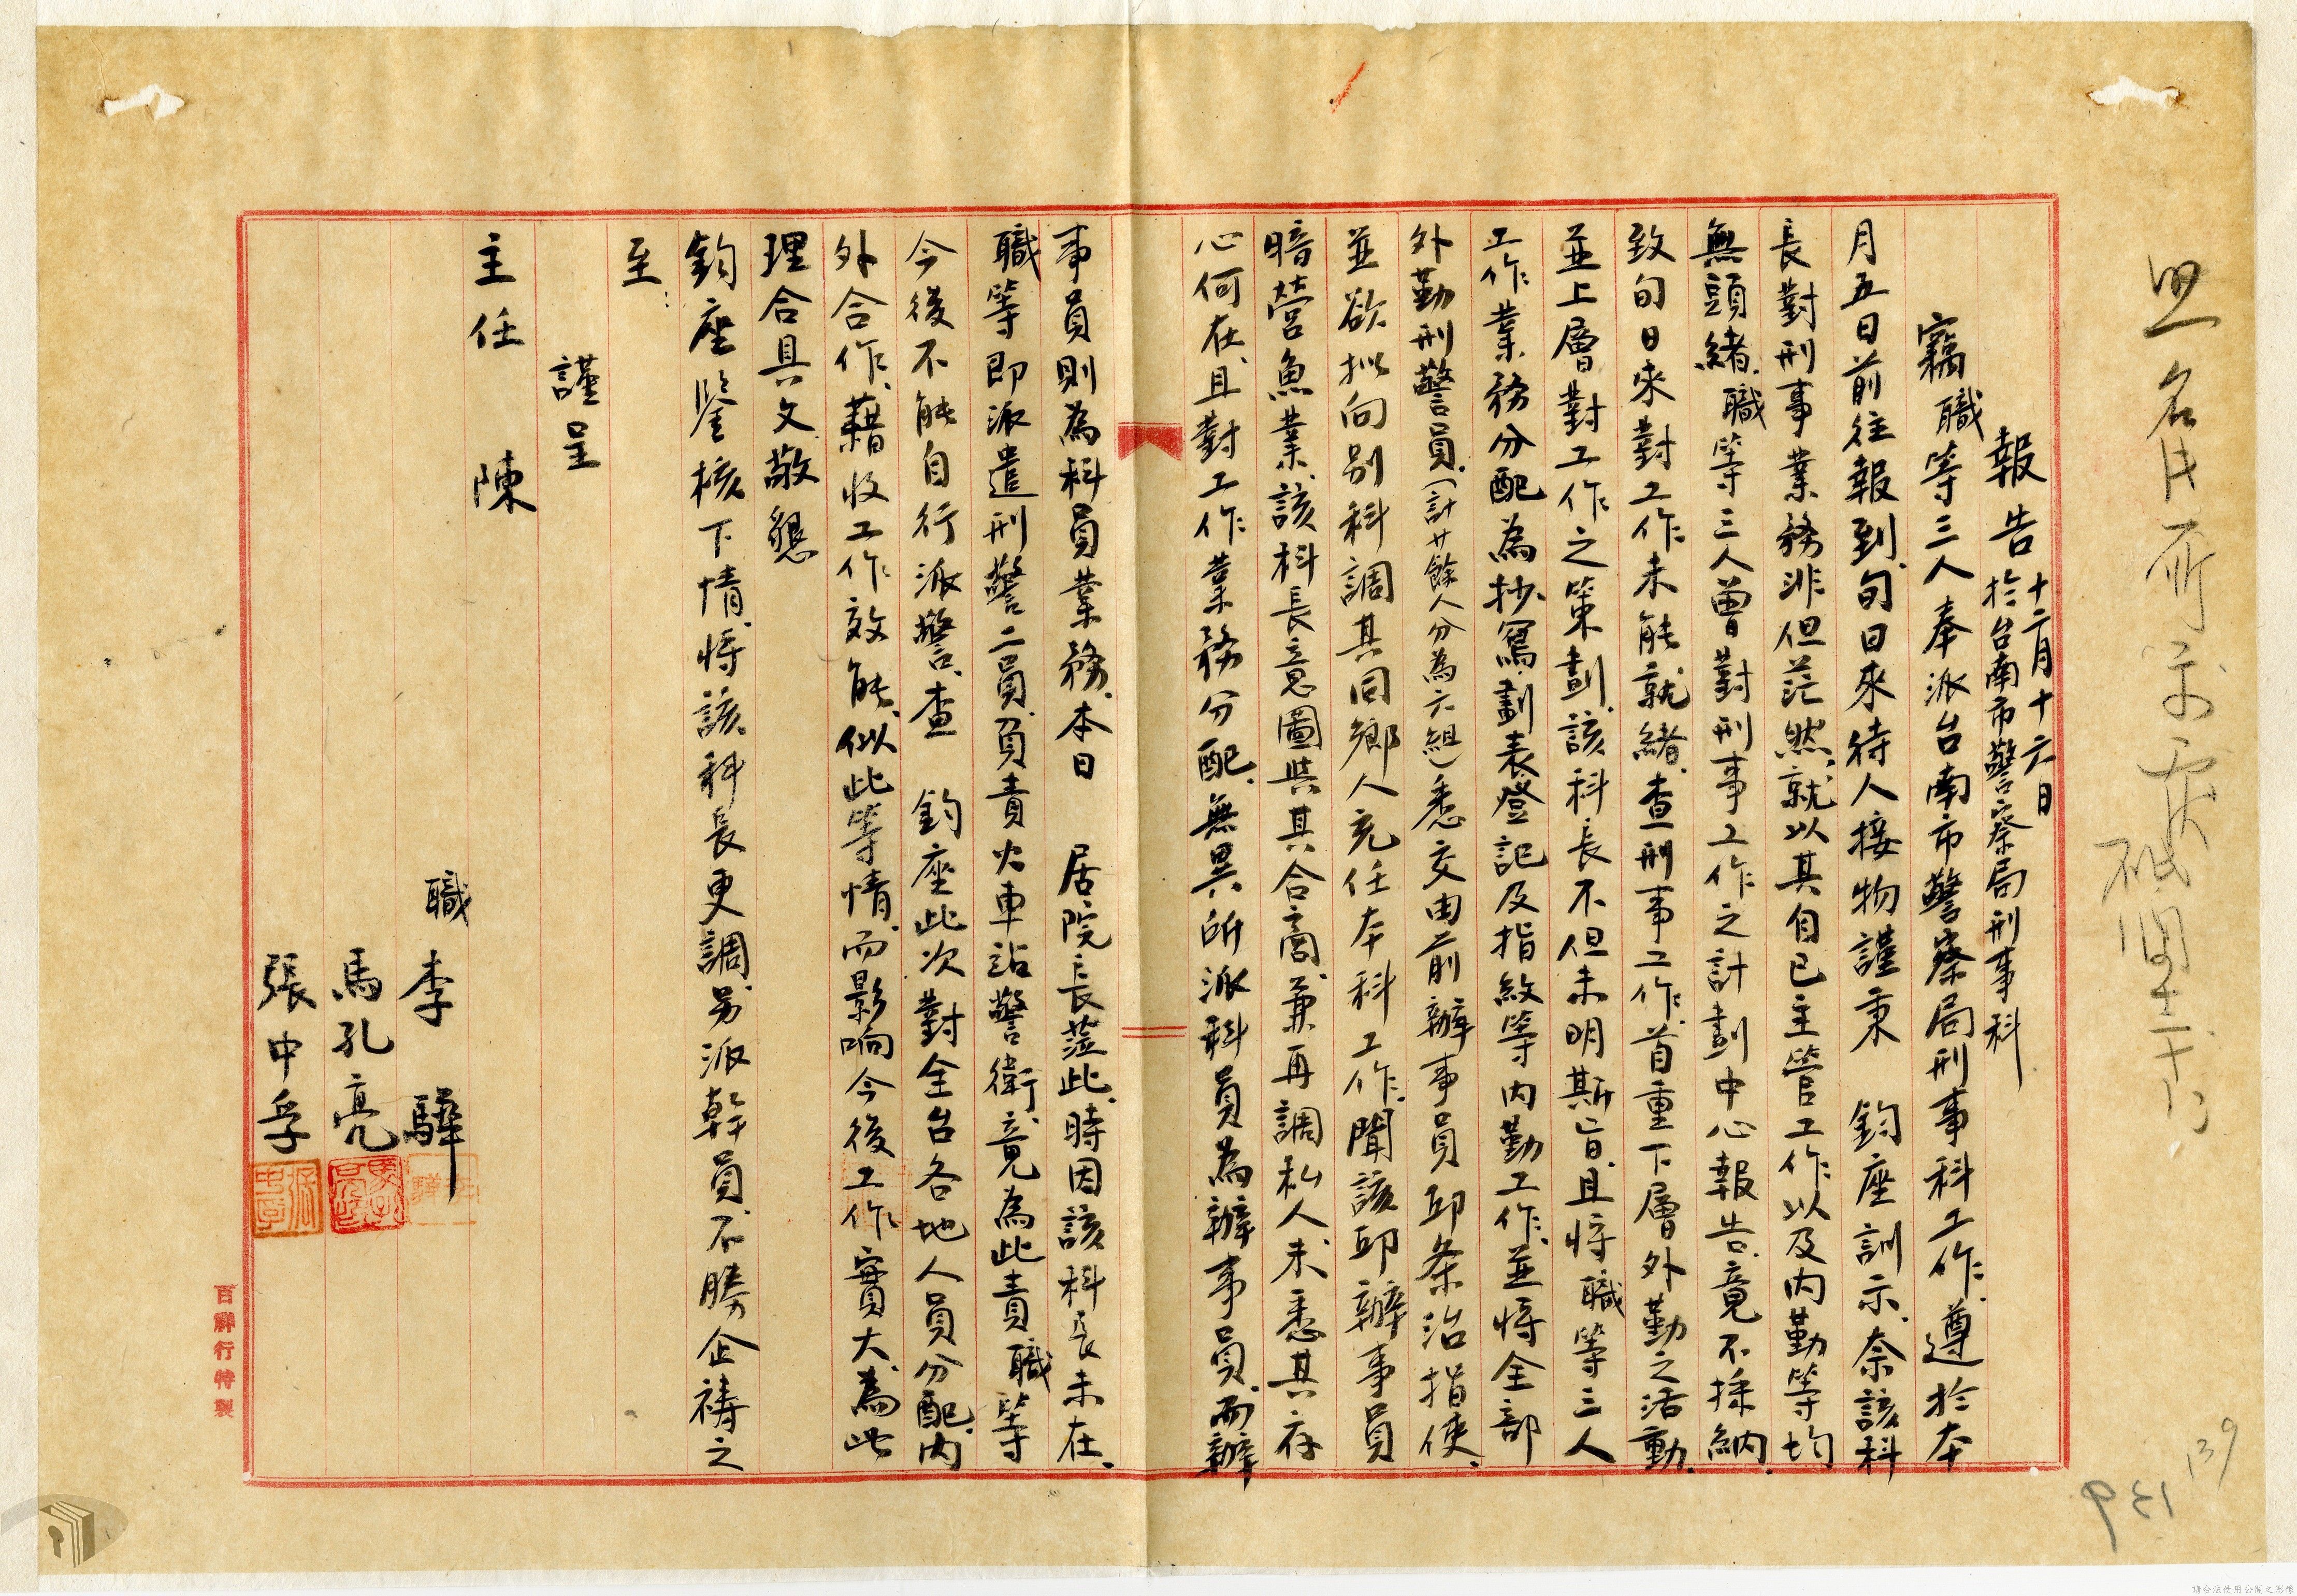 報告 十二月十六日
於台南市警察局刑事科
竊職等三人奉派台南市警察局刑事科工作、遵於本
月五日前往報到、旬日來待人接物謹秉　鈞座訓示、奈該科
長對刑事業務非但茫然、就以其自己主管工作以及內勤等均
無頭緒、職等三人曾對刑事工作之計劃中心報告、竟不採納、
致旬日來對工作未能就緒、查刑事工作、首重下層外勤之活動、
並上層對工作之策劃、該科長不但未明斯旨、且將職等三人
工作業務分配為抄寫、劃表、登記及指紋等內勤工作、並將全部
外勤刑警員、（計廿餘人分為六組）悉交由前辦事員邱条治指使、
並欲拟向别科調其同鄉人充任本科工作、聞該邱辦事員
暗營魚業、該科長意圖與其合商、兼再調私人、未悉其存
心何在、且對工作業務分配、無異所派科員為辦事員、而辦
事員則為科員業務、本日　居院長蒞此、時因該科長未在、
職等即派遣刑警二員、負責火車站警衛、竟為此責職等
今後不能自行派警、查　鈞座此次對全台各地人員分配、內
外合作、藉收工作效能、似此等情、而影响今後工作實大、為此
理合具文敬懇
鈞座鑒核下情、將該科長更調、另派幹員、不勝企禱之
至：
謹呈
主任　陳
職　李　驊
馬孔亮
張中孚
百祥行特製
139
139
請合法使用公開之影像